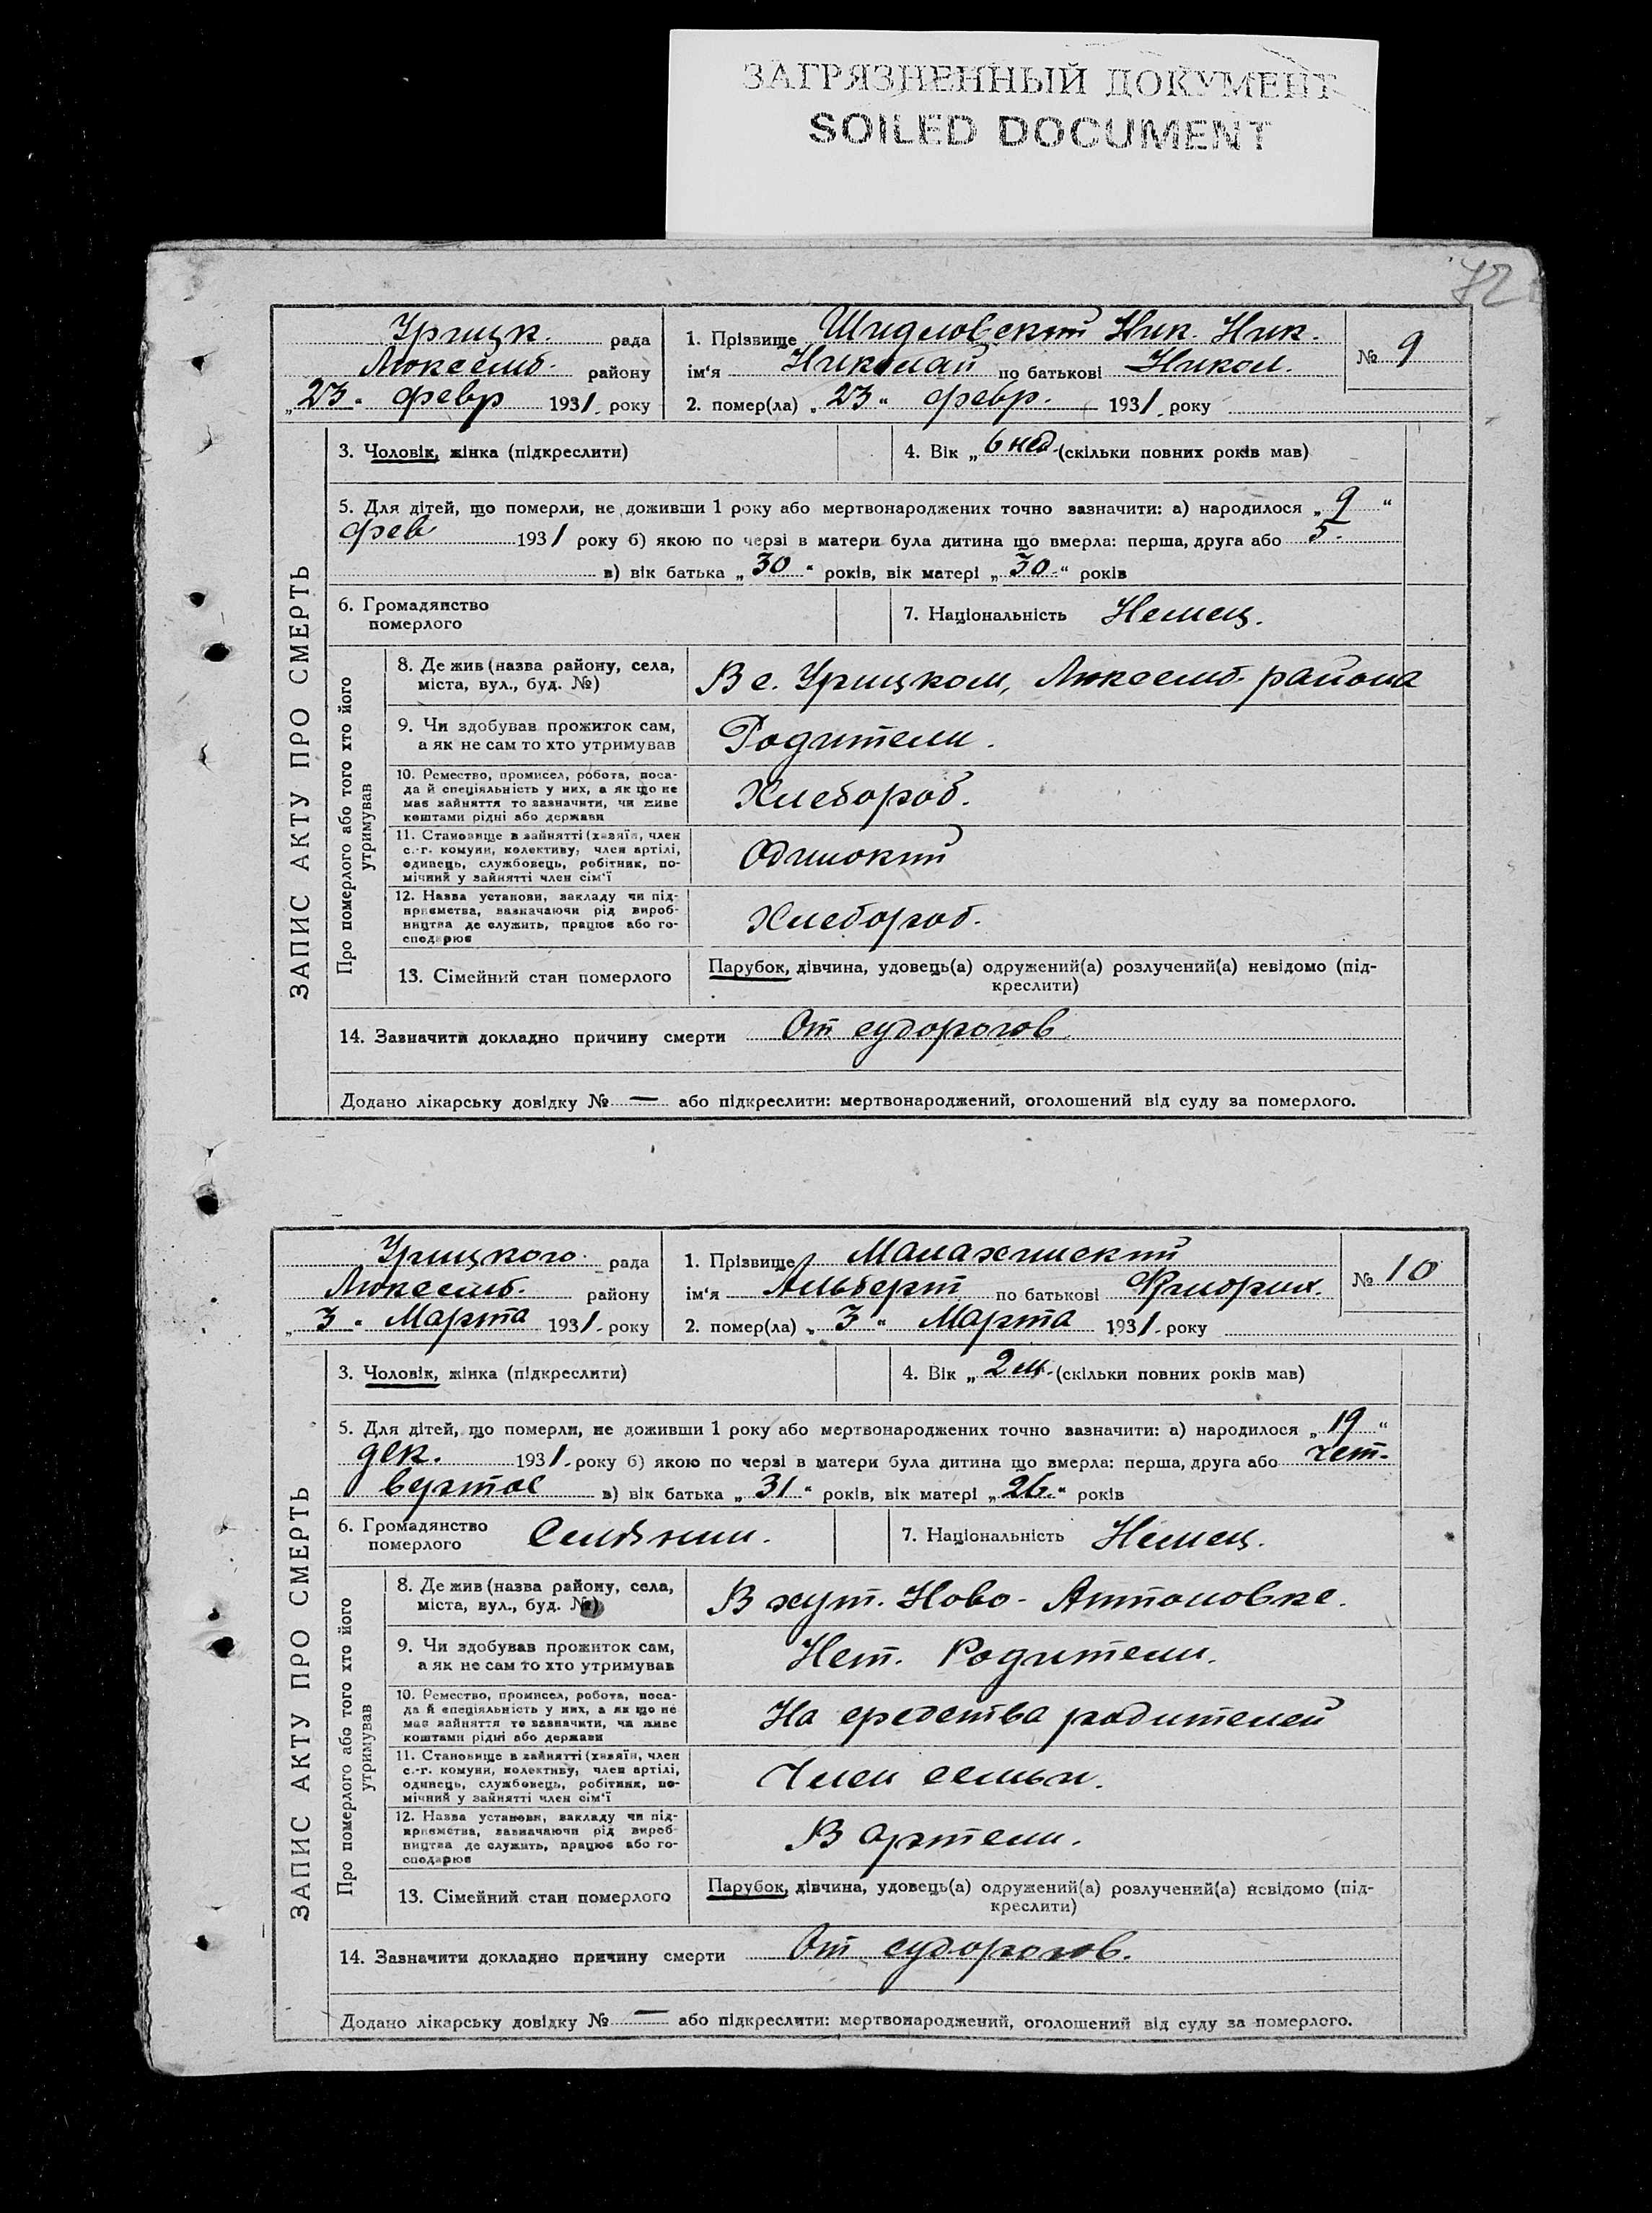 ЗАГРЯЗНЕННЫЙ ДОКУМЕНТ
SOILED DOCUMENT
72
Урицк. рада
Люксемб. району
„23" февр 1931. року
1. Прізвище Шидловский Ник. Ник.
ім'я Николай по батькові Никол.
2. помер(ла) „23" февр. 1931. року
№ 9
ЗАПИС АКТУ ПРО СМЕРТЬ
3. Чоловік, жінка (підкреслити)
4. Вік „6 нед. (скільки повних років мав)
5. Для дітей, що померли, не доживши 1 року або мертвонароджених точно зазначити: а) народилося „9"
фев 1931 року б) якою по черзі в матери була дитина що вмерла: перша, друга або 5.
в) вік батька „30" років, вік матері „30." років
6. Громадянство
померлого
7. Національність Немец.
Про померлого або того хто його
утримував
8. Де жив (назва району, села,
міста, вул., буд. №)
В с. Урицком, Люксемб. района
9. Чи здобував прожиток сам,
а як не сам то хто утримував
Родители.
10. Ремество, промисел, робота, поса-
да й спеціяльність у них, а як що не
має зайняття то зазначити, чи живе
коштами рідні або держави
Хлебороб.
11. Становище в зайнятті (хазяїн, член
с.-г. комуни, колективу, член артілі,
одинець, службовець, робітник, по-
мічний у зайнятті член сім'ї
Одинокий
12. Назва установи, закладу чи під-
приємства, зазначаючи рід вироб-
ництва де служить, працює або го-
сподарює
Хлебороб.
13. Сімейний стан померлого
Парубок, дівчина, удовець(а) одружений(а) розлучений(а) невідомо (під-
креслити)
14. Зазначити докладно причину смерти От судорогов
Додано лікарську довідку № — або підкреслити: мертвонароджений, оголошений від суду за померлого.
Урицкого рада
Люксемб. району
„3" Марта 1931. року
1. Прізвище Малахинский
ім'я Альберт по батькові Фридрих.
2. помер(ла) „3" Марта 1931. року
№ 10
ЗАПИС АКТУ ПРО СМЕРТЬ
3. Чоловік, жінка (підкреслити)
4. Вік „2 м. (скільки повних років мав)
5. Для дітей, що померли, не доживши 1 року або мертвонароджених точно зазначити: а) народилося „19"
дек. 1931. року б) якою по черзі в матери була дитина що вмерла: перша, друга або чет-
вертое в) вік батька „31" років, вік матері „26." років
6. Громадянство
померлого
7. Національність Немец.
Про померлого або того хто його
утримував
8. Де жив (назва району, села,
міста, вул., буд. №)
В хут. Ново-Антоновке.
9. Чи здобував прожиток сам,
а як не сам то хто утримував
Нет. Родители.
10. Ремество, промисел, робота, поса-
да й спеціяльність у них, а як що не
має зайняття то зазначити, чи живе
коштами рідні або держави
На средства родителей
11. Становище в зайнятті (хазяїн, член
с.-г. комуни, колективу, член артілі,
одинець, службовець, робітник, по-
мічний у зайнятті член сім'ї
Член семьи.
12. Назва установи, закладу чи під-
приємства, зазначаючи рід вироб-
ництва де служить, працює або го-
сподарює
В артели.
13. Сімейний стан померлого
Парубок, дівчина, удовець(а) одружений(а) розлучений(а) невідомо (під-
креслити)
14. Зазначити докладно причину смерти От судорогов.
Додано лікарську довідку № — або підкреслити: мертвонароджений, оголошений від суду за померлого.